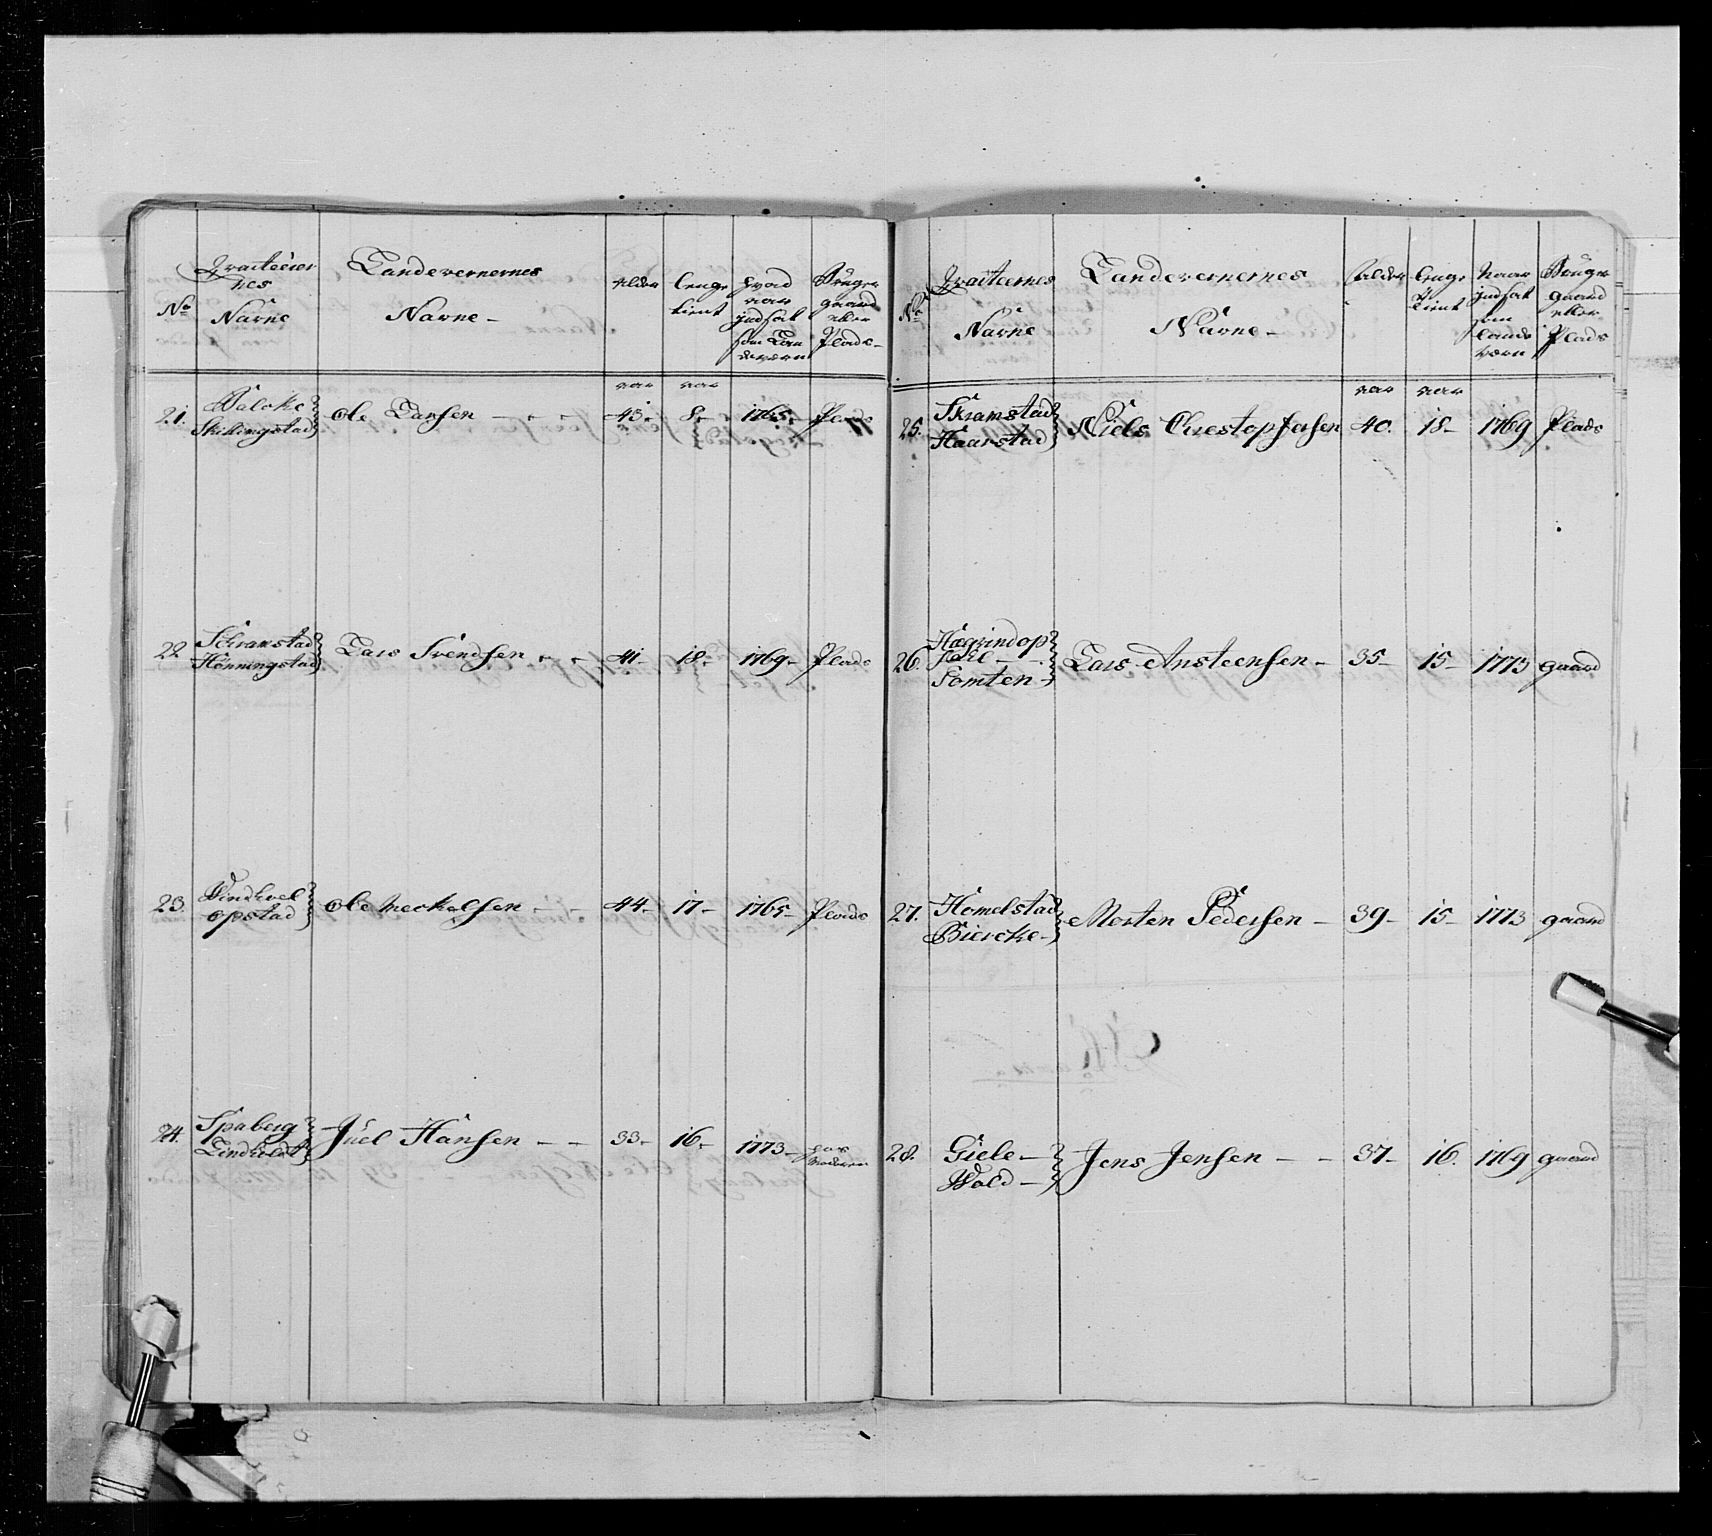 No
Qvarteerer
nes
Navne
Landevernernes
Navne -
alder
lenge
tient
hvad
aar
indsat
som Lan
devern
Bruger
gaard
eller
Plads -
aar aar
21. Balcke
Skillingstad Ole Larsen - - - 43. 8- 1765. Plads
22 Schramstad
Hönningstad Lars Svendsen - - 41- 18- 1769- Plads
23. Windlvel
opstad Ole Meckelsen - - 44- 17- 1765- Plads
24. Spaberg
Lindholdt Juel Hansen - - 33- 16- 1773-
No
Qvarteernes
Navne
Landevernernes
Navne -
alder
lenge
tient
Naar
indsat
som
lands
vern
Bruger
gaard
eller
Plads
aar aar
25. Skramstad
Haarstad Niels Christopfersen 40. 18- 1769 Plads
26. Hægrindop
Somten - Lars Ansteensen - 35- 15- 1773 gaard
27. Homelstad
Biercke - Morten Pedersen - 39- 15- 1773 gaard
28. Giele -
Wold - Jens Jensen - - 37- 16. 1769 gaard